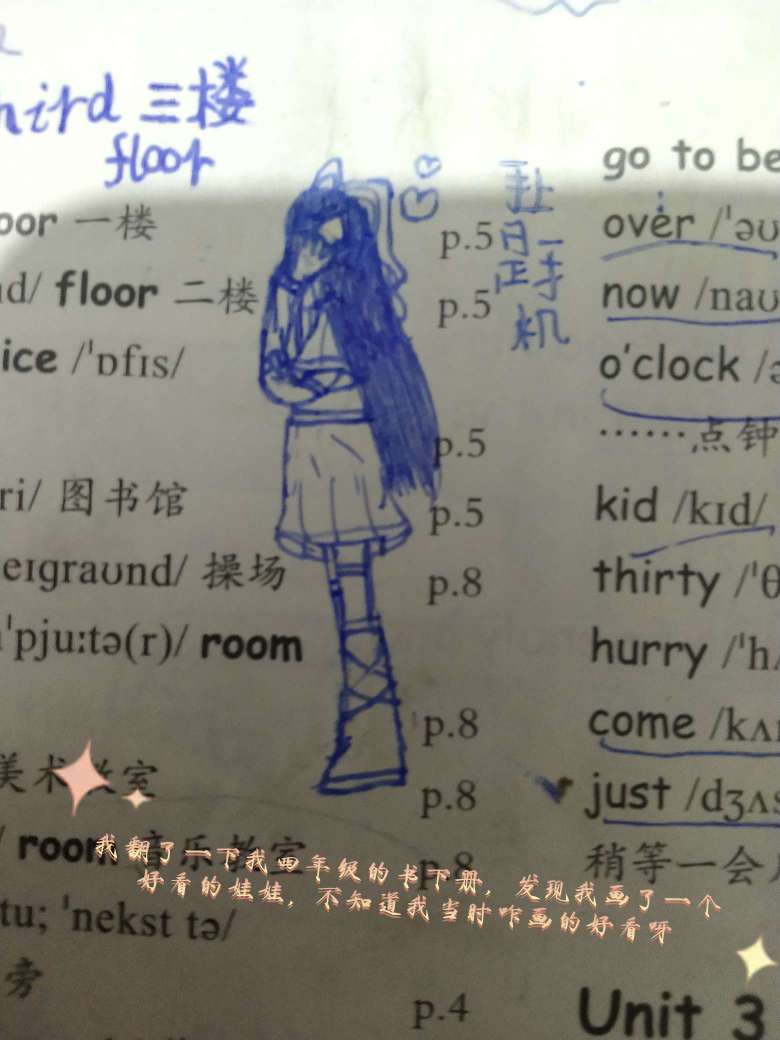 hird 三楼
floor
oor 一楼
p.5
go to be
over /ˈəʊ
nd/ floor 二楼
p.5
now /naʊ
ice /ˈɒfɪs/
o'clock /ə
p.5
……点钟
ri/ 图书馆
p.5
kid /kɪd/
eɪɡraʊnd/ 操场
p.8
thirty /ˈθ
ˈpjuːtə(r)/ room
hurry /ˈhʌ
p.8
come /kʌm
美术教室
p.8
just /dʒʌs
/ room 音乐教室
p.8
稍等一会儿
tu; ˈnekst tə/
旁
p.4
Unit 3
我翻了一下我四年级的书下册，发现我画了一个
好看的娃娃，不知道我当时咋画的好看呀